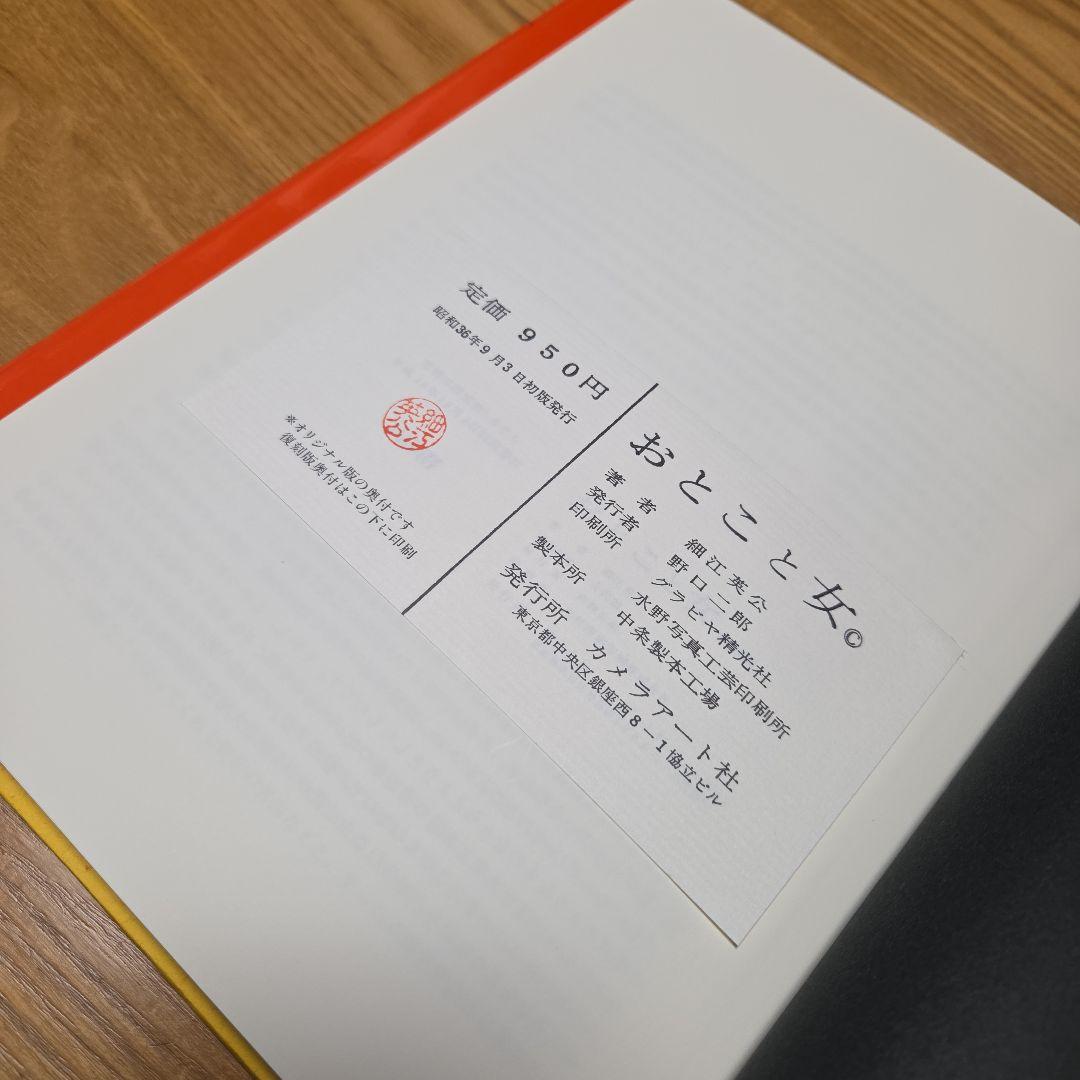 おとこと女©
著者 細江英公
発行者 野口二郎
印刷所 グラビヤ精光社
水野写真工芸印刷所
製本所 中条製本工場
発行所 カメラアート社
東京都中央区銀座西8－1協立ビル
定価 950円
昭和36年9月3日初版発行
細江英公
※オリジナル版の奥付です
復刻版奥付はこの下に印刷